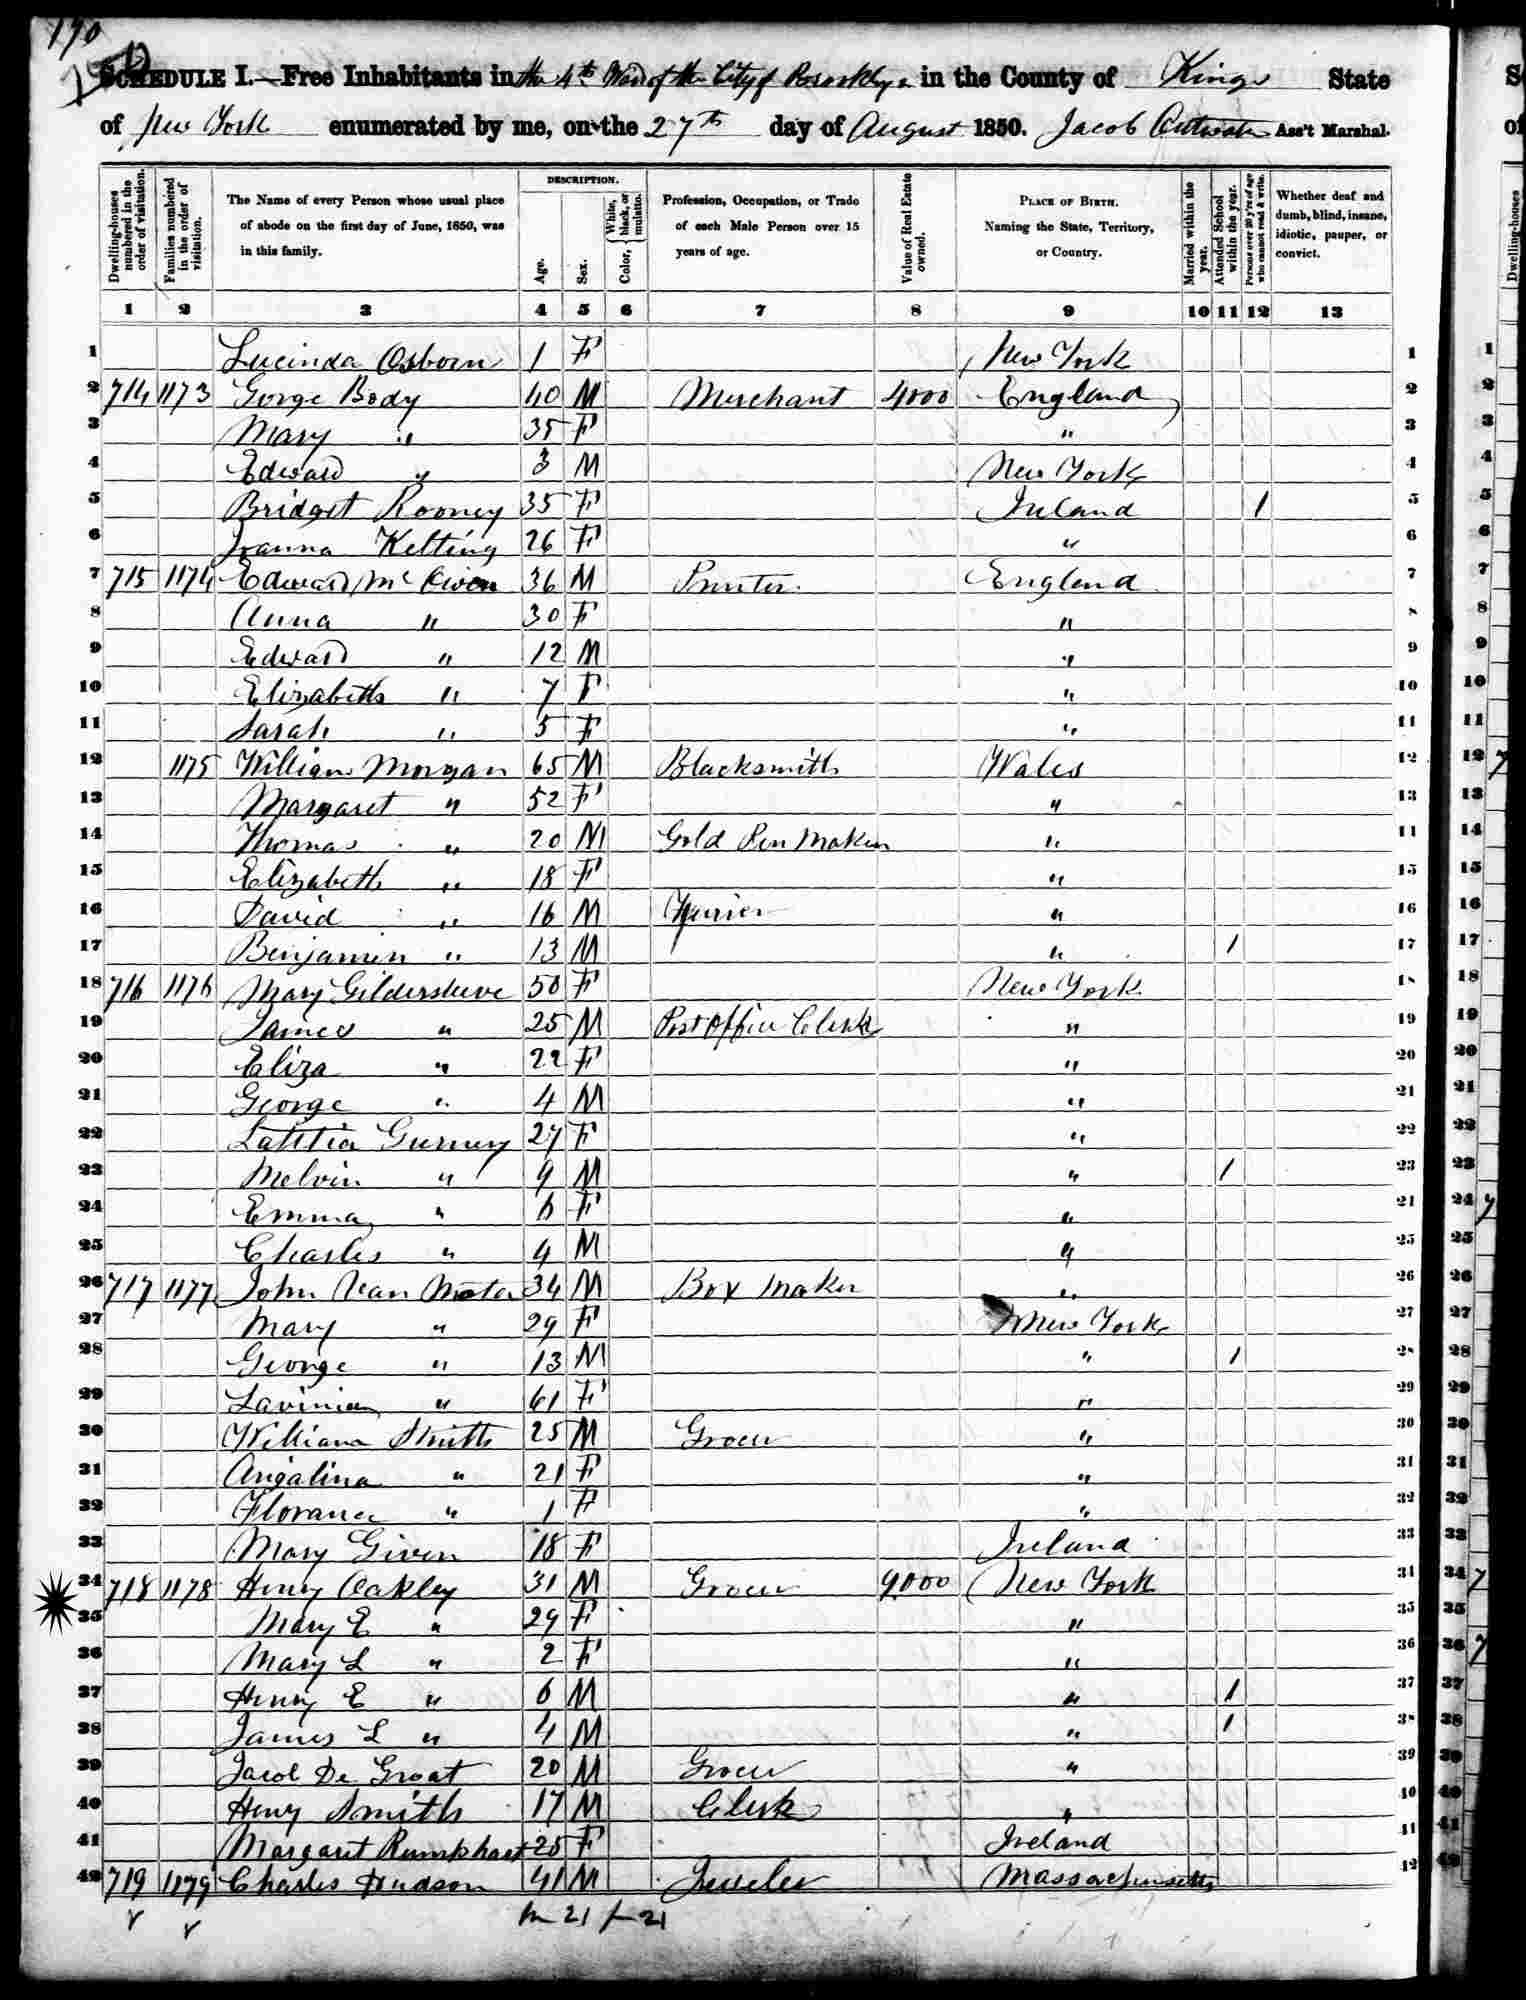 190
SCHEDULE I.—Free Inhabitants in the 4th Ward of the City of Brooklyn in the County of Kings State
of New York enumerated by me, on the 27th day of August 1850. Jacob Ass't Marshal.
Dwelling-houses numbered in the order of visitation.
Families numbered in the order of visitation.
The Name of every Person whose usual place of abode on the first day of June, 1850, was in this family.
DESCRIPTION.
Age.
Sex.
Color, White, black, or mulatto.
Profession, Occupation, or Trade of each Male Person over 15 years of age.
Value of Real Estate owned.
PLACE OF BIRTH. Naming the State, Territory, or Country.
Married within the year.
Attended School within the year.
Persons over 20 y'rs of age who cannot read & write.
Whether deaf and dumb, blind, insane, idiotic, pauper, or convict.
1 2 3 4 5 6 7 8 9 10 11 12 13
1 Lucinda Osborn 1 F New York 1
2 714 1173 Gorge Body 40 M Merchant 4000 England 2
3 Mary " 35 F " 3
4 Edward " 3 M New York 4
5 Bridget Rooney 35 F Ireland 1 5
6 Joanna Kelting 26 F " 6
7 715 1174 Edward Mc Owen 36 M Printer. England 7
8 Anna " 30 F " 8
9 Edward " 12 M " 9
10 Elizabeth " 7 F " 10
11 Sarah " 5 F " 11
12 1175 William Morgan 65 M Blacksmith Wales 12
13 Margaret " 52 F " 13
14 Thomas " 20 M Gold Pen Maker " 14
15 Elizabeth " 18 F " 15
16 David " 16 M Furrier " 16
17 Benjamin " 13 M " 1 17
18 716 1176 Mary Gildersleeve 50 F New York 18
19 James " 25 M Post Office Clerk " 19
20 Eliza " 22 F " 20
21 George " 4 M " 21
22 Latitia Gurney 27 F " 22
23 Melvin " 9 M " 1 23
24 Emma " 6 F " 24
25 Charles " 4 M " 25
26 717 1177 John Van Mater 34 M Box Maker " 26
27 Mary " 29 F New York 27
28 George " 13 M " 1 28
29 Lavinia " 61 F " 29
30 William Smith 25 M Grocer " 30
31 Angalina " 21 F " 31
32 Florance " 1 F " 32
33 Mary Given 18 F Ireland 33
34 718 1178 Henry Oakley 31 M Grocer 9000 New York 34
35 Mary E " 29 F " 35
36 Mary L " 2 F " 36
37 Henry E " 6 M " 1 37
38 James L " 4 M " 1 38
39 Jacob De Groat 20 M Grocer " 39
40 Henry Smith 17 M Clerk " 40
41 Margaret 25 F Ireland 41
42 719 1179 Charles Hudson 41 M Jeweler Massachusetts 42
m 21 f 21